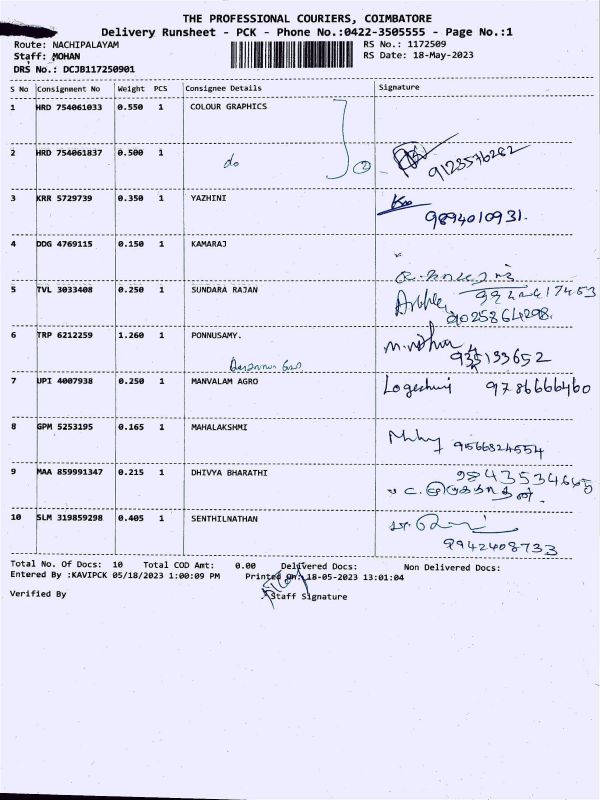 THE PROFESSIONAL COURIERS, COIMBATORE
Delivery Runsheet - PCK - Phone No.:0422-3505555 - Page No.:1
Route: NACHIPALAYAM RS No.: 1172509
Staff: MOHAN RS Date: 18-May-2023
DRS No.: DCJB117250901
S No Consignment No Weight PCS Consignee Details Signature
1 HRD 754061033 0.550 1 COLOUR GRAPHICS
2 HRD 754061837 0.500 1 do 2 9123576262
3 KRR 5729739 0.350 1 YAZHINI
9894010931.
4 DDG 4769115 0.150 1 KAMARAJ
5 TVL 3033408 0.250 1 SUNDARA RAJAN
9025864298.
6 TRP 6212259 1.260 1 PONNUSAMY.
7 UPI 4007938 0.250 1 MANVALAM AGRO 9786666460
8 GPM 5253195 0.165 1 MAHALAKSHMI
9566824554
9 MAA 859991347 0.215 1 DHIVYA BHARATHI
10 SLM 319859298 0.405 1 SENTHILNATHAN
9942408733
Total No. Of Docs: 10 Total COD Amt: 0.00 Delivered Docs: Non Delivered Docs:
Entered By :KAVIPCK 05/18/2023 1:00:09 PM Printed On: 18-05-2023 13:01:04
Verified By Staff Signature